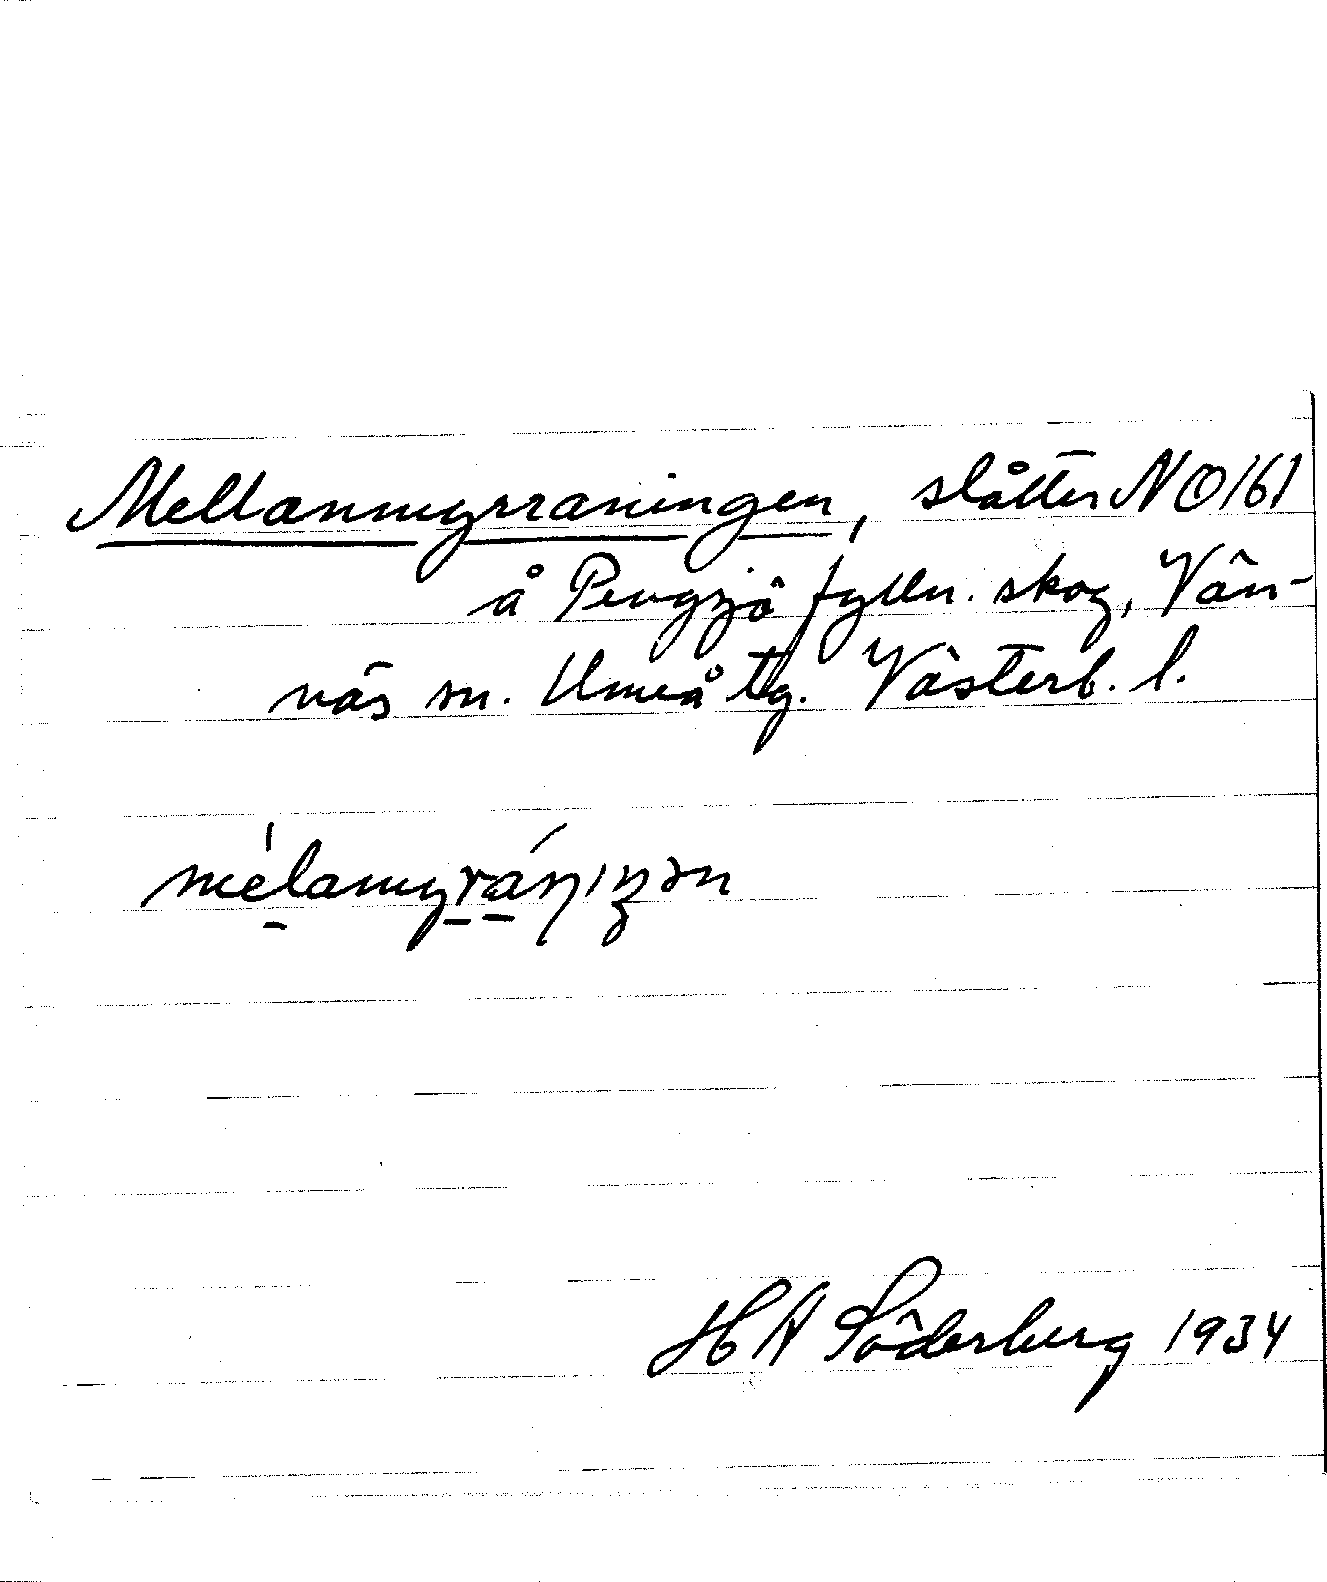 Mellanmyrraningen, slåtter NO161
å Pengsjö fylln. skog, Vän-
näs sn. Umeå tg. Västerb. l.
mélamyráŋıŋən
HA Söderberg 1934